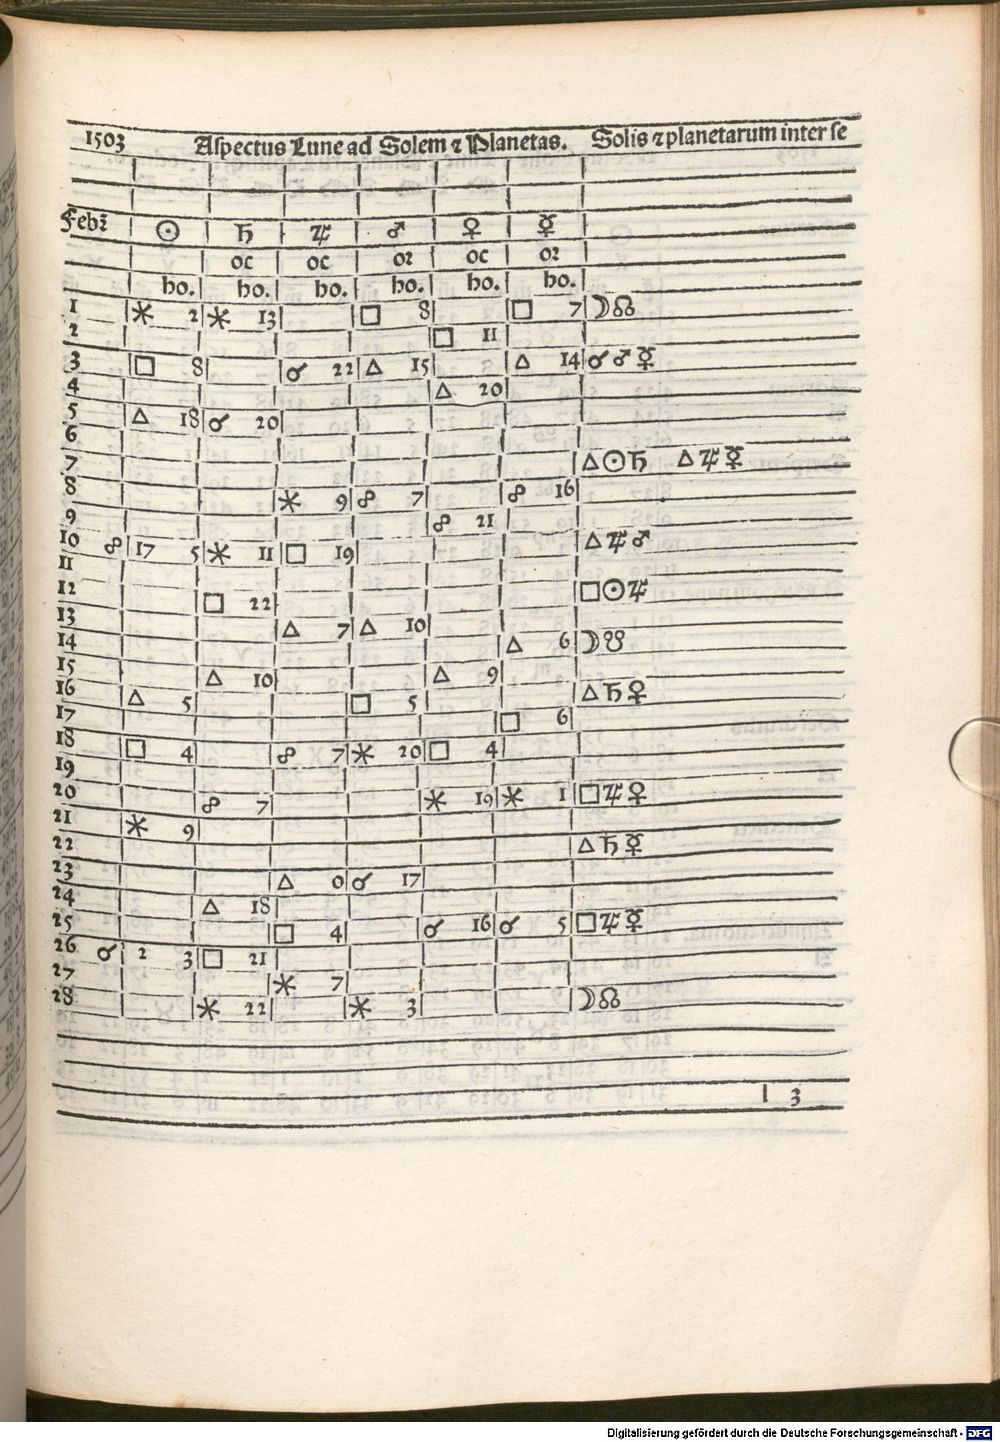 1503 Aspectus Lune ad Solem ⁊ Planetas. Solis ⁊ planetarum inter se
Febꝛ ☉ ♄ ♃ ♂ ♀ ☿
oc oc oꝛ oc oꝛ
ho. ho. ho. ho. ho. ho.
1 ⚹ 2 ⚹ 13 □ 8 □ 7 ☽☊
2 □ 11
3 □ 8 ☌ 22 △ 15 △ 14 ☌♂☿
4 △ 20
5 △ 18 ☌ 20
6
7 △☉♄ △♃☿
8 ⚹ 9 ☍ 7 ☍ 16
9 ☍ 21
10 ☍ 17 5 ⚹ 11 □ 19 △♃♂
11
12 □ 22 □☉♃
13 △ 7 △ 10
14 △ 6 ☽☋
15 △ 10 △ 9
16 △ 5 □ 5 △♄♀
17 □ 6
18 □ 4 ☍ 7 ⚹ 20 □ 4
19
20 ☍ 7 ⚹ 19 ⚹ 1 □♃♀
21 ⚹ 9
22 △♄☿
23 △ 0 ☌ 17
24 △ 18
25 □ 4 ☌ 16 ☌ 5 □♃☿
26 ☌ 2 3 □ 21
27 ⚹ 7
28 ⚹ 22 ⚹ 3 ☽☊
l 3
Digitalisierung gefördert durch die Deutsche Forschungsgemeinschaft - DFG